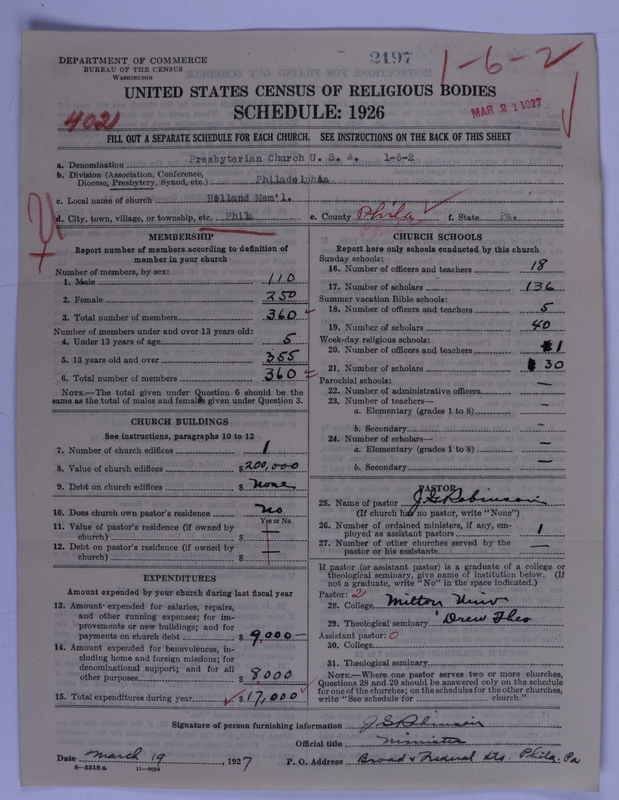 DEPARTMENT OF COMMERCE
BUREAU OF THE CENSUS
WASHINGTON
2197
1-6-2
UNITED STATES CENSUS OF RELIGIOUS BODIES
SCHEDULE: 1926
MAR 21 1927
402
FILL OUT A SEPARATE SCHEDULE FOR EACH CHURCH. SEE INSTRUCTIONS ON THE BACK OF THIS SHEET
a. Denomination Presbyterian Church U. S. A. 1-6-2
b. Division (Association, Conference,
Diocese, Presbytery, Synod, etc.) Philadelphia
c. Local name of church Holland Mem'l.
d. City, town, village, or township, etc. Phil e. County Phila f. State Pa.
MEMBERSHIP
Report number of members according to definition of
member in your church
Number of members, by sex:
1. Male 110
2. Female 250
3. Total number of members 360
Number of members under and over 13 years old:
4. Under 13 years of age 5
5. 13 years old and over 355
6. Total number of members 360
NOTE.—The total given under Question 6 should be
same as the total of males and females given under Question 3.
CHURCH BUILDINGS
See instructions, paragraphs 10 to 12
7. Number of church edifices 1
8. Value of church edifices $200,000
9. Debt on church edifices $ None
10. Does church own pastor's residence no
Yes or No
11. Value of pastor's residence (if owned by
church) $ —
12. Debt on pastor's residence (if owned by
church) $ —
EXPENDITURES
Amount expended by your church during last fiscal year
13. Amount expended for salaries, repairs,
and other running expenses; for im-
provements or new buildings; and for
payments on church debt $9,000—
14. Amount expended for benevolences, in-
cluding home and foreign missions; for
denominational support; and for all
other purposes $8000
15. Total expenditures during year $17,000
CHURCH SCHOOLS
Report here only schools conducted by this church
Sunday schools:
16. Number of officers and teachers 18
17. Number of scholars 136
Summer vacation Bible schools:
18. Number of officers and teachers 5
19. Number of scholars 40
Week-day religious schools:
20. Number of officers and teachers 1
21. Number of scholars 30
Parochial schools:
22. Number of administrative officers —
23. Number of teachers—
a. Elementary (grades 1 to 8) —
b. Secondary —
24. Number of scholars—
a. Elementary (grades 1 to 8) —
b. Secondary —
PASTOR
25. Name of pastor J G Robinson
(If church has no pastor, write "None")
26. Number of ordained ministers, if any, em-
ployed as assistant pastors 1
27. Number of other churches served by the
pastor or his assistants —
If pastor (or assistant pastor) is a graduate of a college or
theological seminary, give name of institution below. (If
not a graduate, write "No" in the space indicated.)
Pastor: 2
28. College Milton Univ
29. Theological seminary Drew Theo
Assistant pastor: 0
30. College
31. Theological seminary
NOTE.—Where one pastor serves two or more churches,
Questions 28 and 29 should be answered only on the schedule
for one of the churches; on the schedules for the other churches,
write "See schedule for church."
Signature of person furnishing information J G Robinson
Official title Minister
Date March 19, 1927 P. O. Address Broad & Federal Sts. Phila. Pa
8—5518a 11—9054